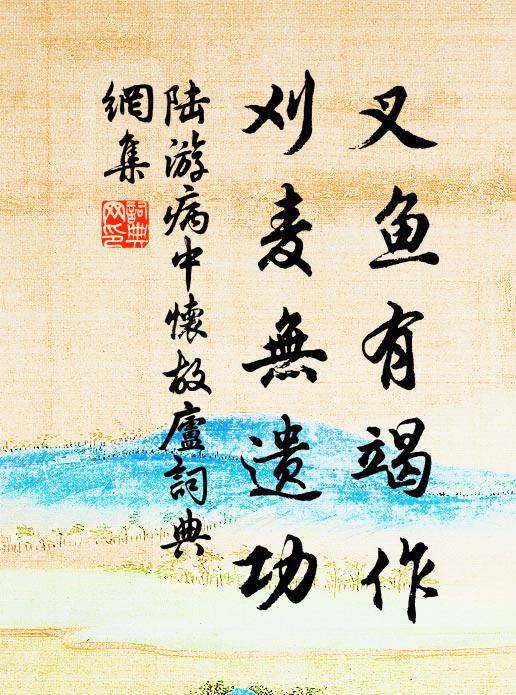 叉鱼有竭作
刈麦無遗功
陆游病中懷故廬詞典
網集
詞典
网印